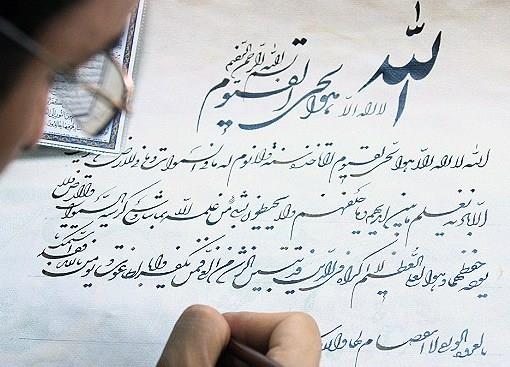 الله
بسم الله الرحمن الرحیم
لا اله الا هو الحی القیوم
الله لا اله الا هو الحی القیوم لا تاخذه سنة و لا نوم له ما فی السموات و ما فی الارض
الا باذنه یعلم ما بین ایدیهم و ما خلفهم و لا یحیطون بشیء من علمه الا بما شاء وسع کرسیه السموات والارض ولا
یوده حفظهما و هو العلی العظیم لا اکراه فی الدین قد تبین الرشد من الغی فمن یکفر بالطاغوت و یومن بالله فقد استمسک
بالعروة الوثقی لا انفصام لها والله